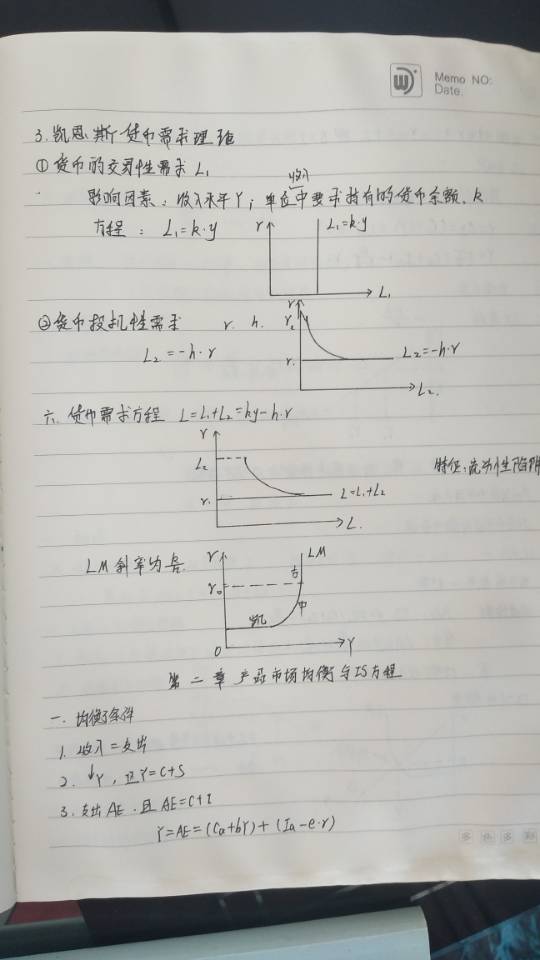 W
Memo NO:
Date.
3. 凯恩斯货币需求理论
① 货币的交易性需求 L₁
收入
影响因素：收入水平Y；单位中要求持有的货币余额、k
方程：L₁=k·y
r
L₁=k·y
L₁
② 货币投机性需求 r. h.
L₂=-h·r
r
r₂
r.
L₂=-h·r
L₂.
六. 货币需求方程 L=L₁+L₂=ky-h·r
r
L₂
r.
L=L₁+L₂
L.
特征：流动性陷阱
LM斜率为
r
LM
古
r₀
中
凯
O
Y
第二章 产品市场均衡与IS方程
一. 均衡条件
1. 收入=支出
2. ↓Y，且Y=C+S
3. 支出AE. 且AE=C+I
Y=AE=(Ca+bY)+(Ia-e·r)